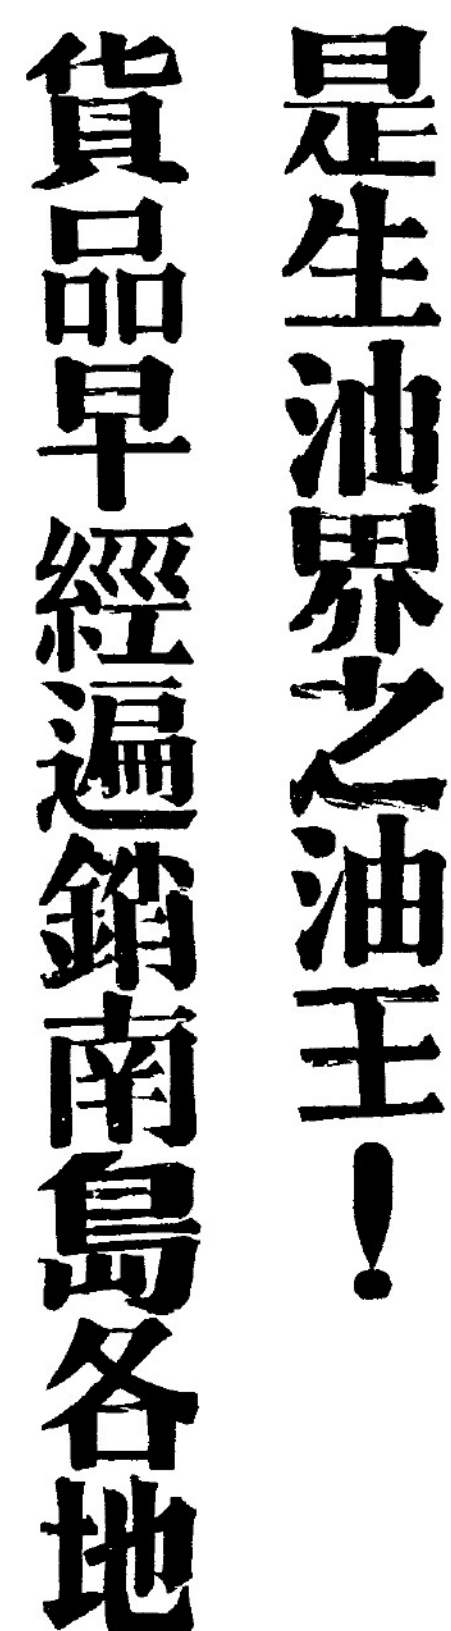 是生油界之油王！
貨品早經遍銷南島各地